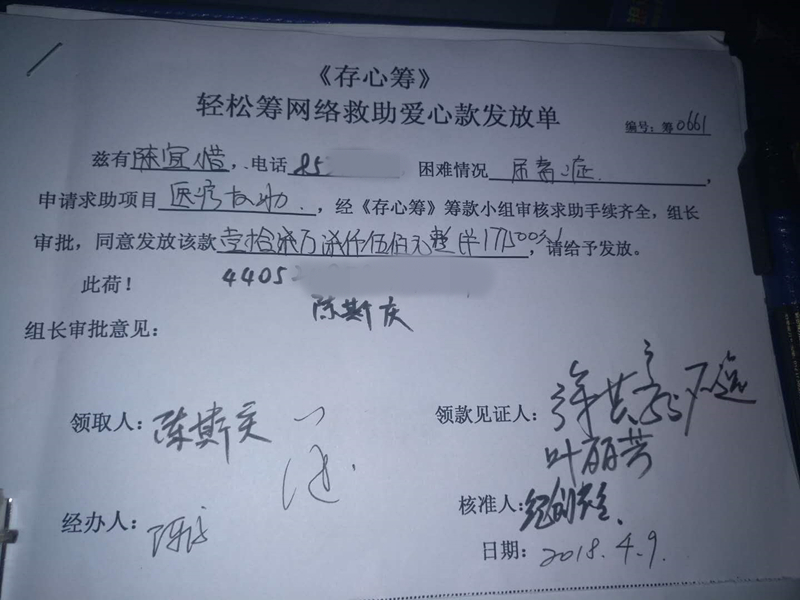 《存心筹》
轻松筹网络救助爱心款发放单
编号：筹0661
兹有陈宜惜，电话 困难情况尿毒症，
申请求助项目医疗救助，经《存心筹》筹款小组审核求助手续齐全，组长
审批，同意发放该款壹拾柒万柒仟伍佰元整，请给予发放。
此荷！ 4405
组长审批意见：
领取人： 领款见证人：
叶丽芳
经办人： 核准人：
日期：2018.4.9.